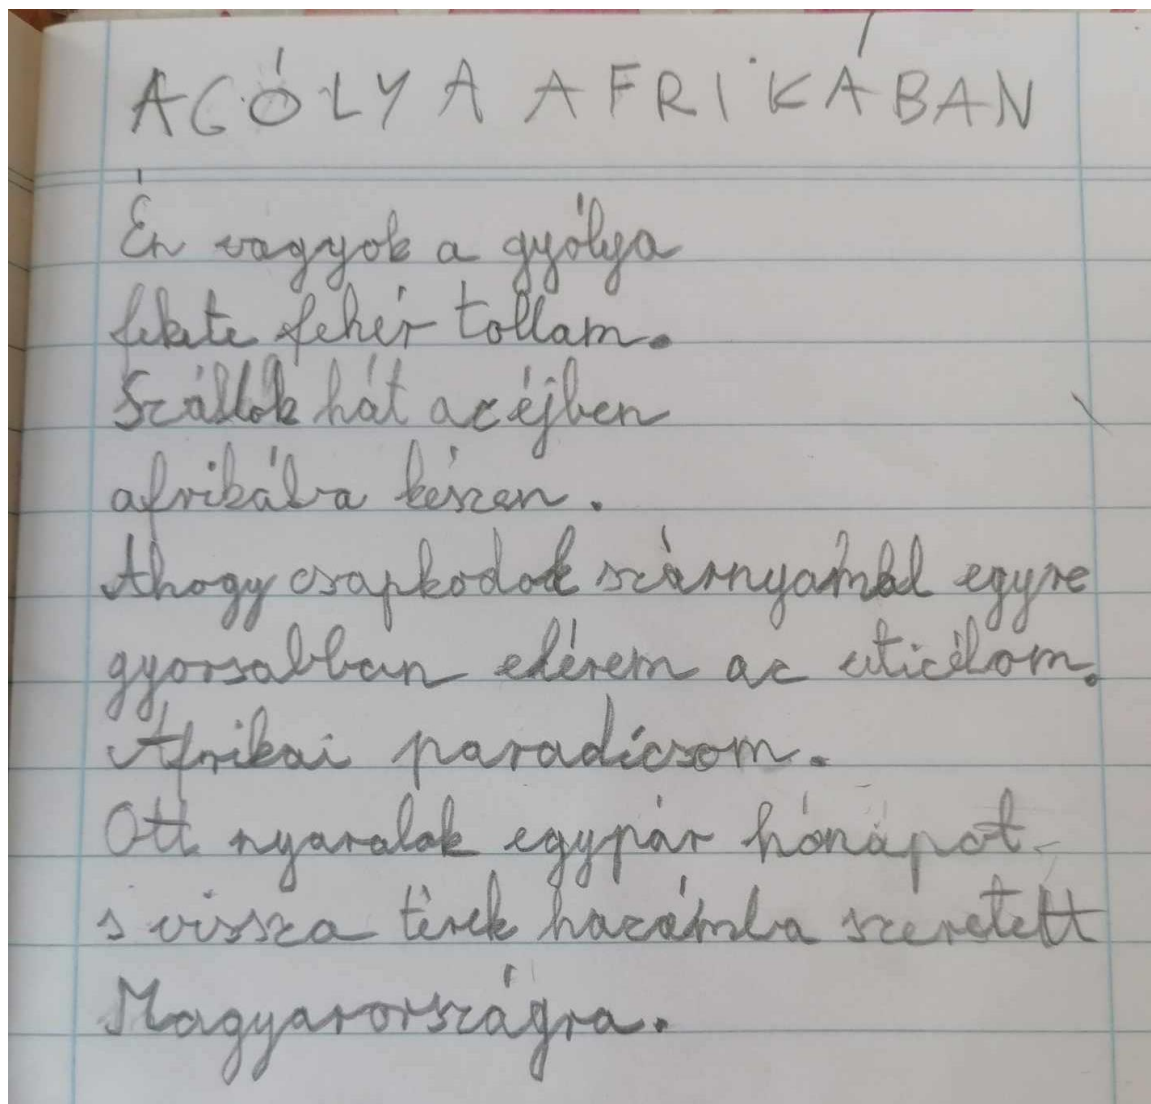 A GÓLYA AFRIKÁBAN
Én vagyok a gyólya
fekete fehér tollam.
Szállok hát az éjben
afrikába készen.
Ahogy csapkodok szárnyammal egyre
gyorsabban elérem az uticélom.
Afrikai paradicsom.
Ott nyaralok egypár hónapot
s vissza térek hazámba szeretett
Magyarországra.